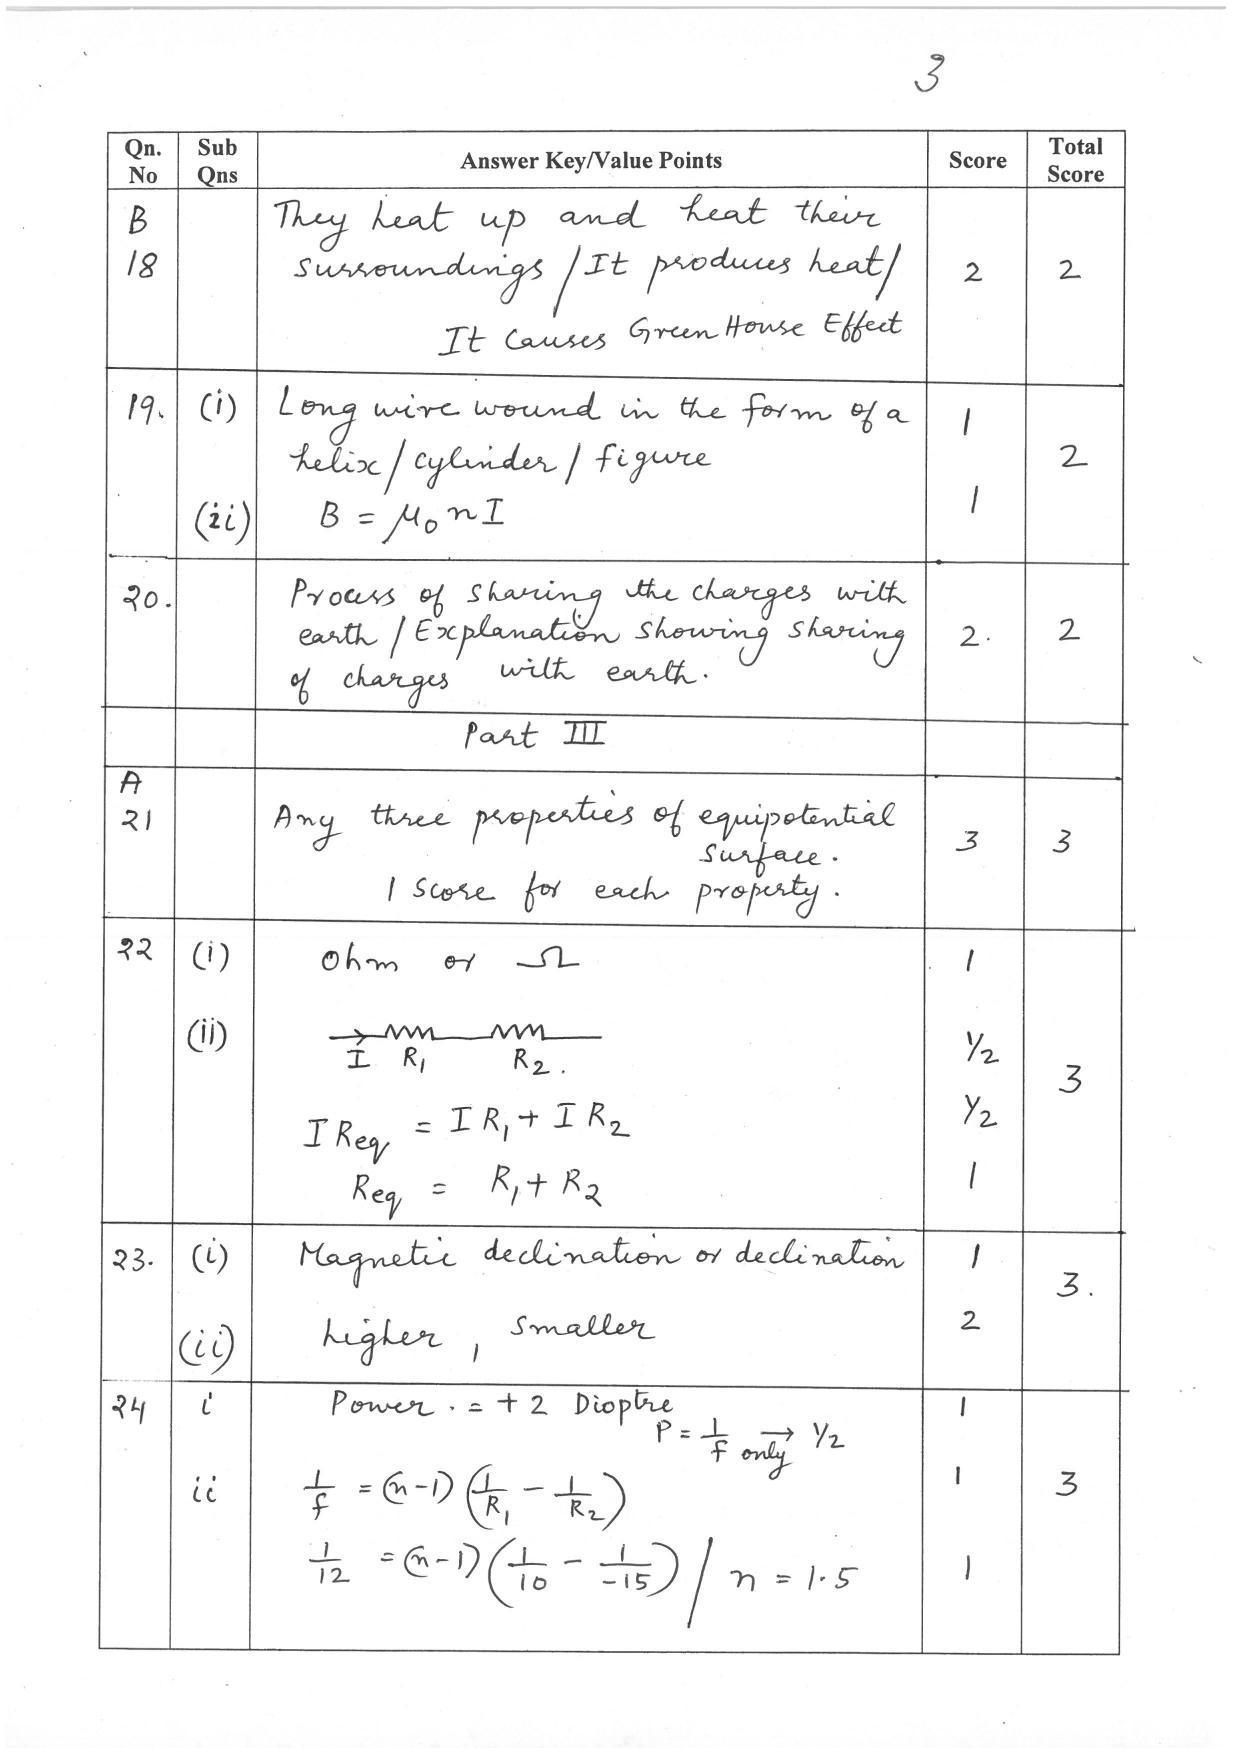 3
Qn. No Sub Qns Answer Key/Value Points Score Total Score
B
18 They heat up and heat their
surroundings / It produces heat/ 2 2
It causes Green House Effect
19. (i) Long wire wound in the form of a 1
helix / cylinder / figure 2
(ii) B = μ₀ n I 1
20. Process of sharing the charges with
earth / Explanation showing sharing 2. 2
of charges with earth.
Part III
A
21 Any three properties of equipotential
surface. 3 3
1 score for each property.
22 (i) Ohm or Ω 1
(ii) I R₁ R₂. ½
3
I Req = I R₁ + I R₂ ½
Req = R₁ + R₂ 1
23. (i) Magnetic declination or declination 1
3.
(ii) higher, smaller 2
24 i Power. = + 2 Dioptre 1
P = 1/f only → ½
ii 1/f = (n-1) (1/R₁ - 1/R₂) 1 3
1/12 = (n-1) (1/10 - 1/-15) / n = 1.5 1